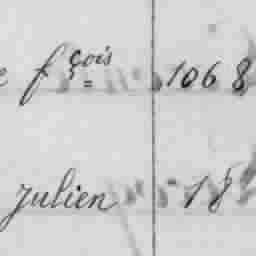 e fçois 1068
Julien 18